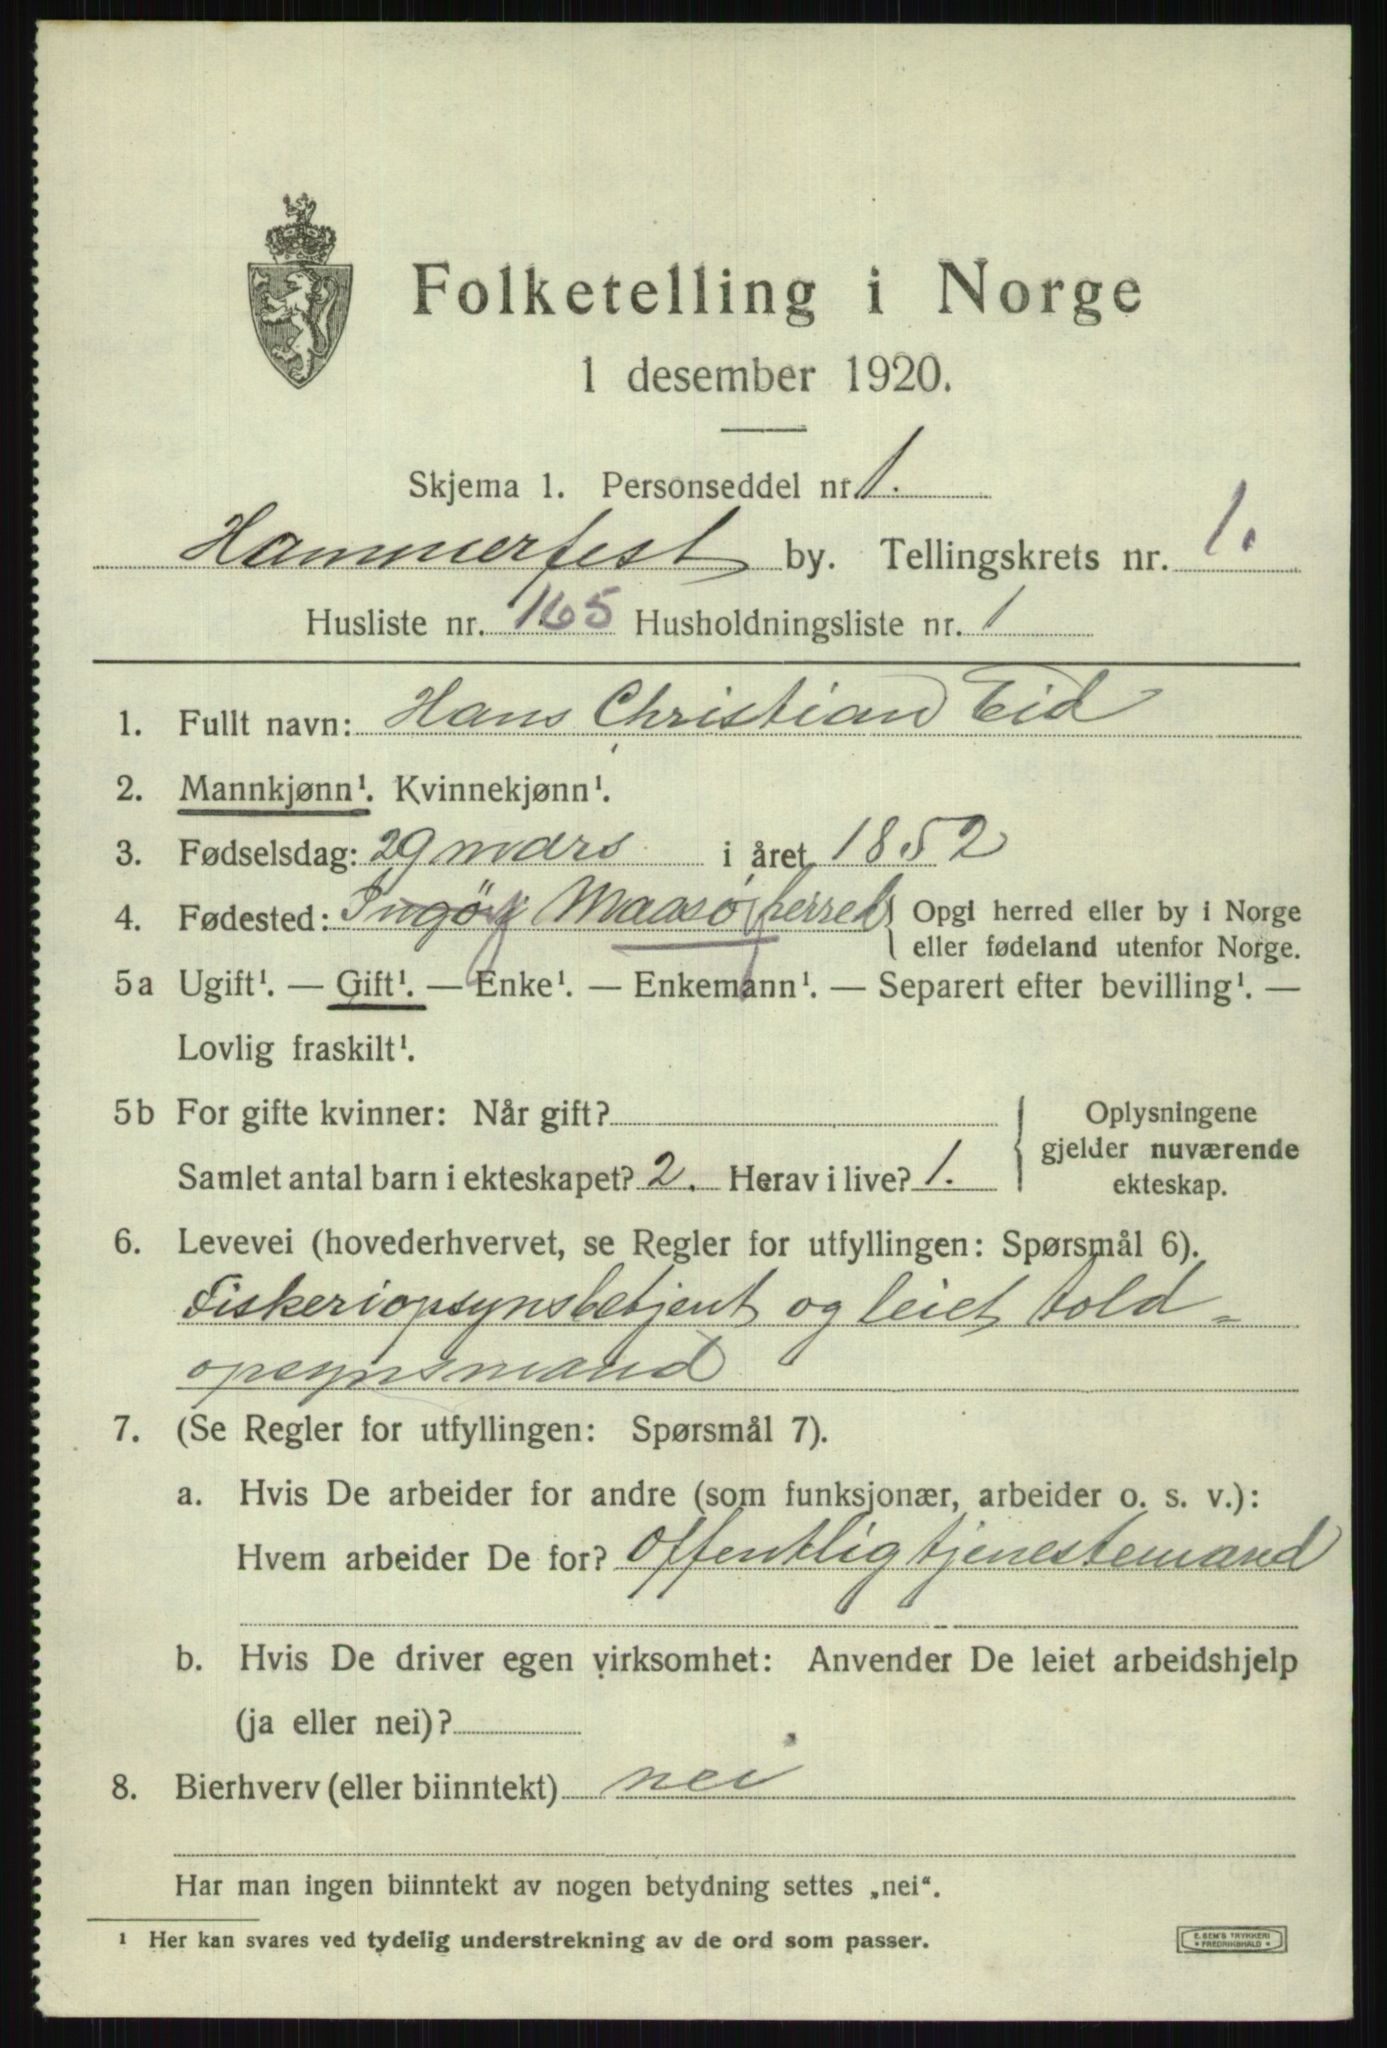 Folketelling i Norge
1 desember 1920.
Skjema 1. Personseddel nr. 1.
Hammerfest by. Tellingskrets nr. 1.
Husliste nr. 165 Husholdningsliste nr. 1
1. Fullt navn: Hans Christian Eid
2. Mannkjønn¹. Kvinnekjønn¹.
3. Fødselsdag: 29 mars i året 1852
4. Fødested: Ingöy Maasø herred { Opgi herred eller by i Norge
eller fødeland utenfor Norge.
5a Ugift¹. — Gift¹. — Enke¹. — Enkemann¹. — Separert efter bevilling¹. —
Lovlig fraskilt¹.
5b For gifte kvinner: Når gift?
Samlet antal barn i ekteskapet? 2. Herav i live? 1.
Oplysningene
gjelder nuværende
ekteskap.
6. Levevei (hovederhvervet, se Regler for utfyllingen: Spørsmål 6).
Fiskeriopsynsbetjent og leiet told=
opsynsmand
7. (Se Regler for utfyllingen: Spørsmål 7).
a. Hvis De arbeider for andre (som funksjonær, arbeider o. s. v.):
Hvem arbeider De for? Offentlig tjenestemand
b. Hvis De driver egen virksomhet: Anvender De leiet arbeidshjelp
(ja eller nei)?
8. Bierhverv (eller biinntekt) nei
Har man ingen biinntekt av nogen betydning settes „nei“.
¹ Her kan svares ved tydelig understrekning av de ord som passer.
E. SEM'S TRYKKERI
FREDRIKSHALD